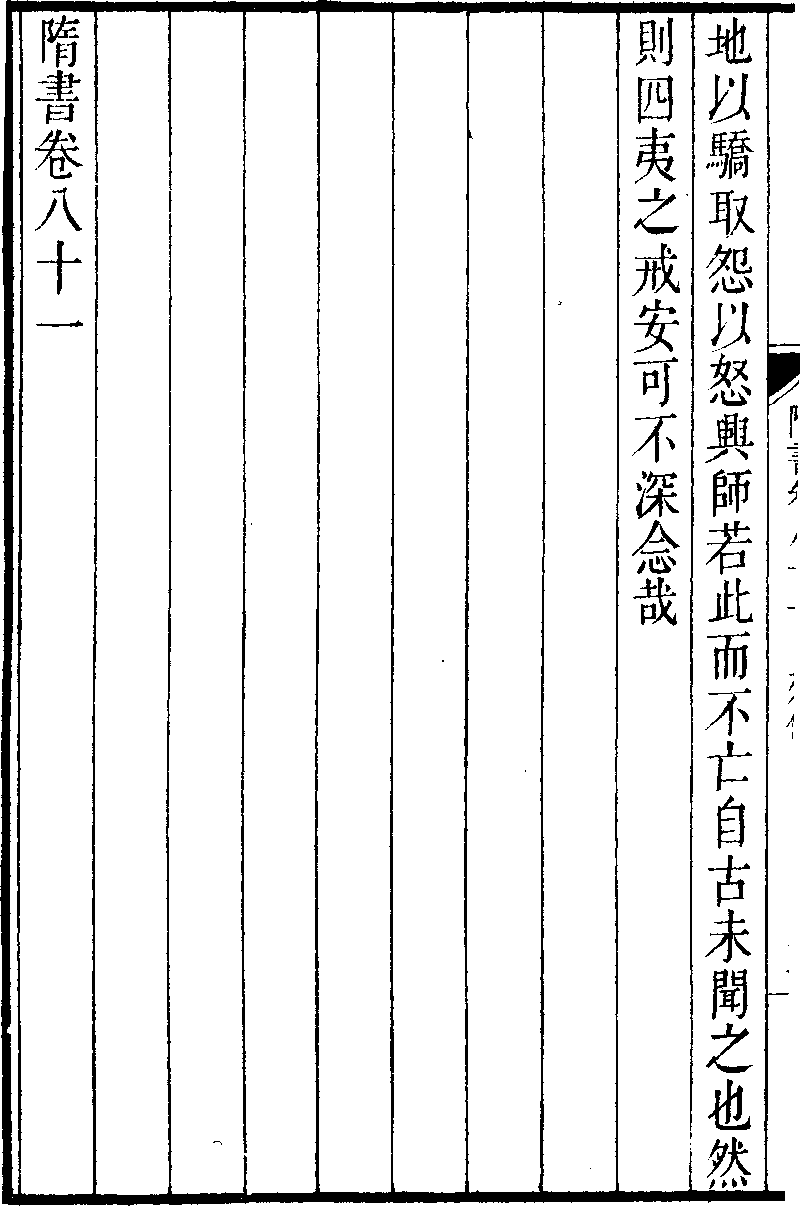 地以驕取怨以怒興師若此而不亡自古未聞之也然
則四夷之戒安可不深念哉
隋書卷八十一